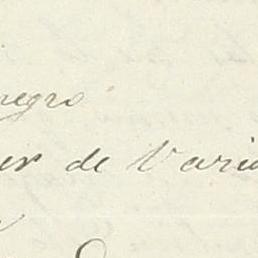 negro
er de Varia